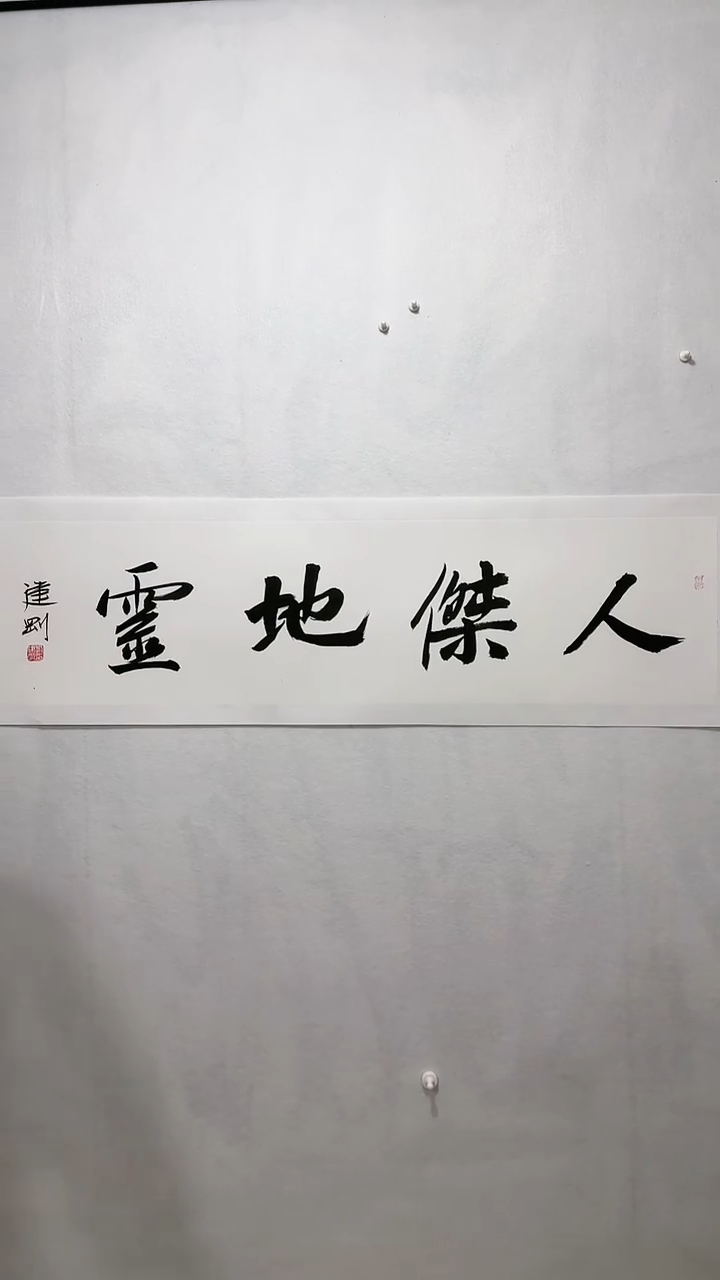 人傑地靈
建剛